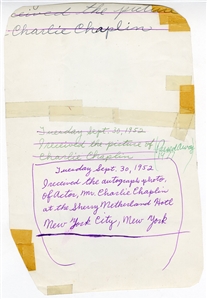 the picture
Charlie Chaplin
Tuesday Sept. 30, 1952
I received the picture of
Charlie Chaplin
Passed away
Tuesday Sept. 30, 1952
I received the autograph photo
of Actor, Mr. Charlie Chaplin
at the Sherry Netherland Hotl
New York City, New York